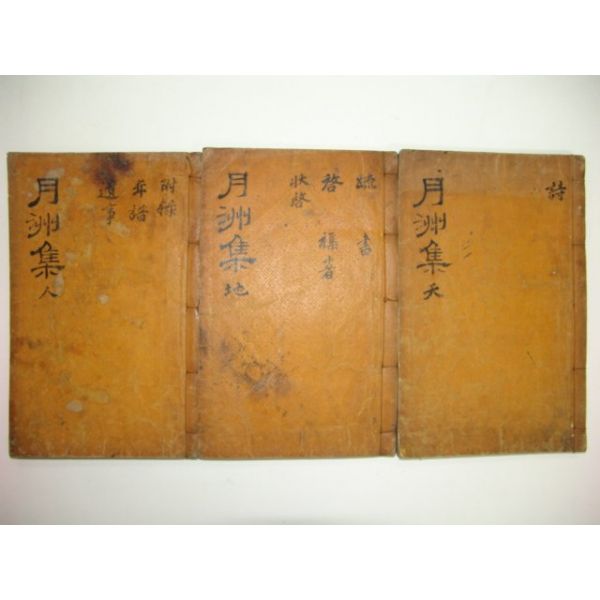 詩
月洲集天
疏 書
啓 襍著
狀啓
月洲集地
附錄
年譜
遺事
月洲集人